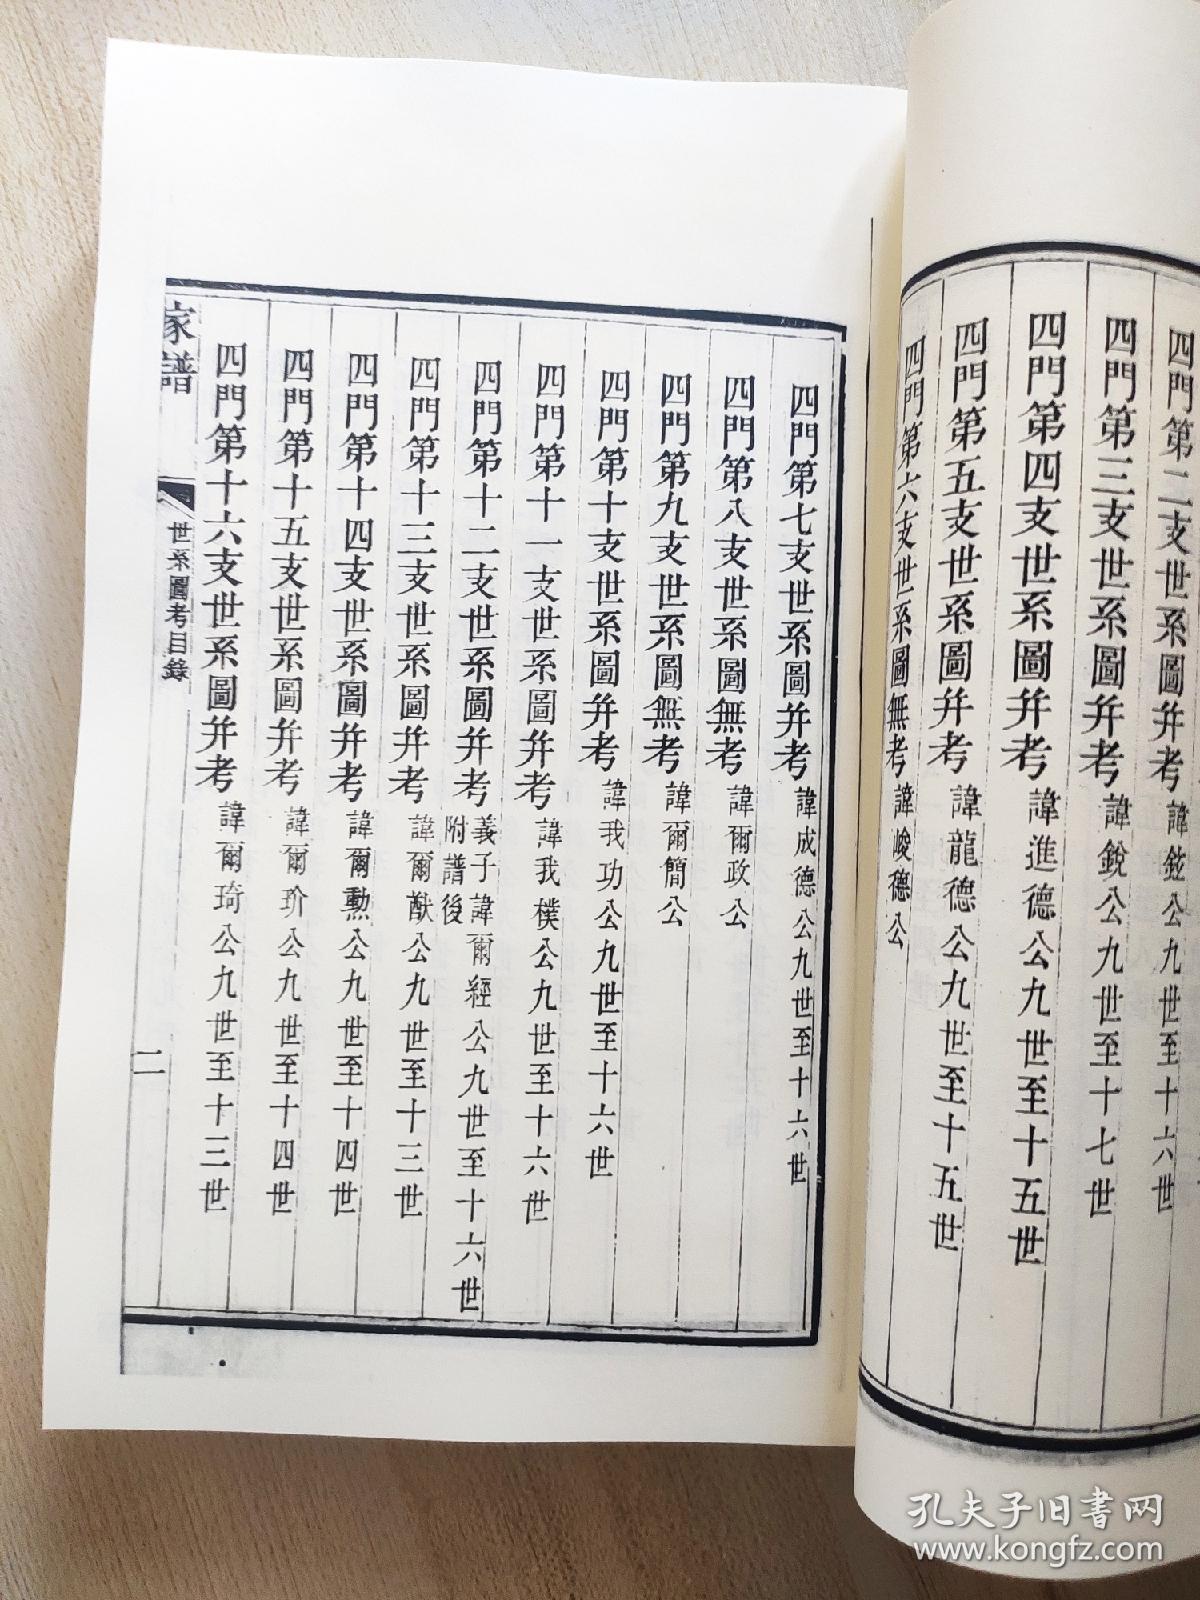 四門第二支世系圖并考 諱鉉公九世至十六世
四門第三支世系圖并考 諱銳公九世至十七世
四門第四支世系圖并考 諱進德公九世至十五世
四門第五支世系圖并考 諱龍德公九世至十五世
四門第六支世系圖無考 諱峻德公
四門第七支世系圖并考 諱成德公九世至十六世
四門第八支世系圖無考 諱爾政公
四門第九支世系圖無考 諱爾簡公
四門第十支世系圖并考 諱我功公九世至十六世
四門第十一支世系圖并考 諱我樸公九世至十六世
四門第十二支世系圖并考 義子諱爾經公九世至十六世
附譜後
四門第十三支世系圖并考 諱爾猷公九世至十三世
四門第十四支世系圖并考 諱爾勲公九世至十四世
四門第十五支世系圖并考 諱爾玠公九世至十四世
四門第十六支世系圖并考 諱爾琦公九世至十三世
家譜 世系圖考目錄 二
孔夫子旧书网
www.kongfz.com